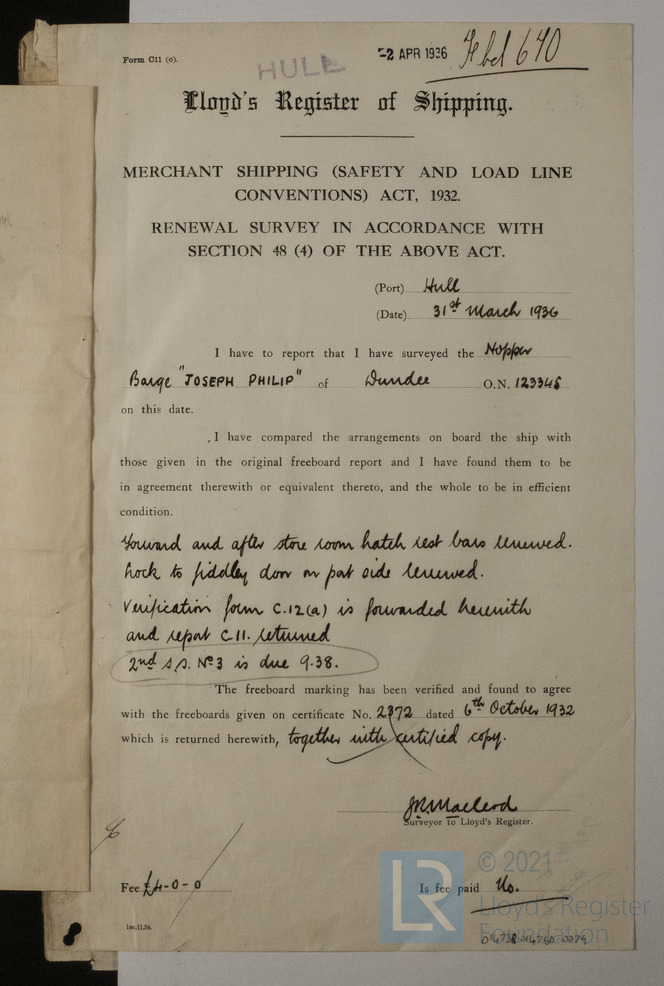 Form C11 (c).
HULL.
-2 APR 1936
Fbd 640
Lloyd's Register of Shipping.
MERCHANT SHIPPING (SAFETY AND LOAD LINE
CONVENTIONS) ACT, 1932.
RENEWAL SURVEY IN ACCORDANCE WITH
SECTION 48 (4) OF THE ABOVE ACT.
(Port) Hull
(Date) 31st March 1936
I have to report that I have surveyed the Hopper
Barge "JOSEPH PHILIP" of Dundee O.N. 123345
on this date.
I have compared the arrangements on board the ship with
those given in the original freeboard report and I have found them to be
in agreement therewith or equivalent thereto, and the whole to be in efficient
condition.
Forward and after store room hatch rest bars renewed.
Lock to fiddley door on port side renewed.
Verification form C.12(a) is forwarded herewith
and report C.11. returned
2nd S.S. No 3 is due 9.38.
The freeboard marking has been verified and found to agree
with the freeboards given on certificate No. 2372 dated 6th October 1932
which is returned herewith, together with certified copy.
JRMacleod
Surveyor to Lloyd's Register.
Fee £4-0-0
Is fee paid No.
1m,11,34.
LR
© 2021
Lloyd's Register
Foundation
014738-014760-0079